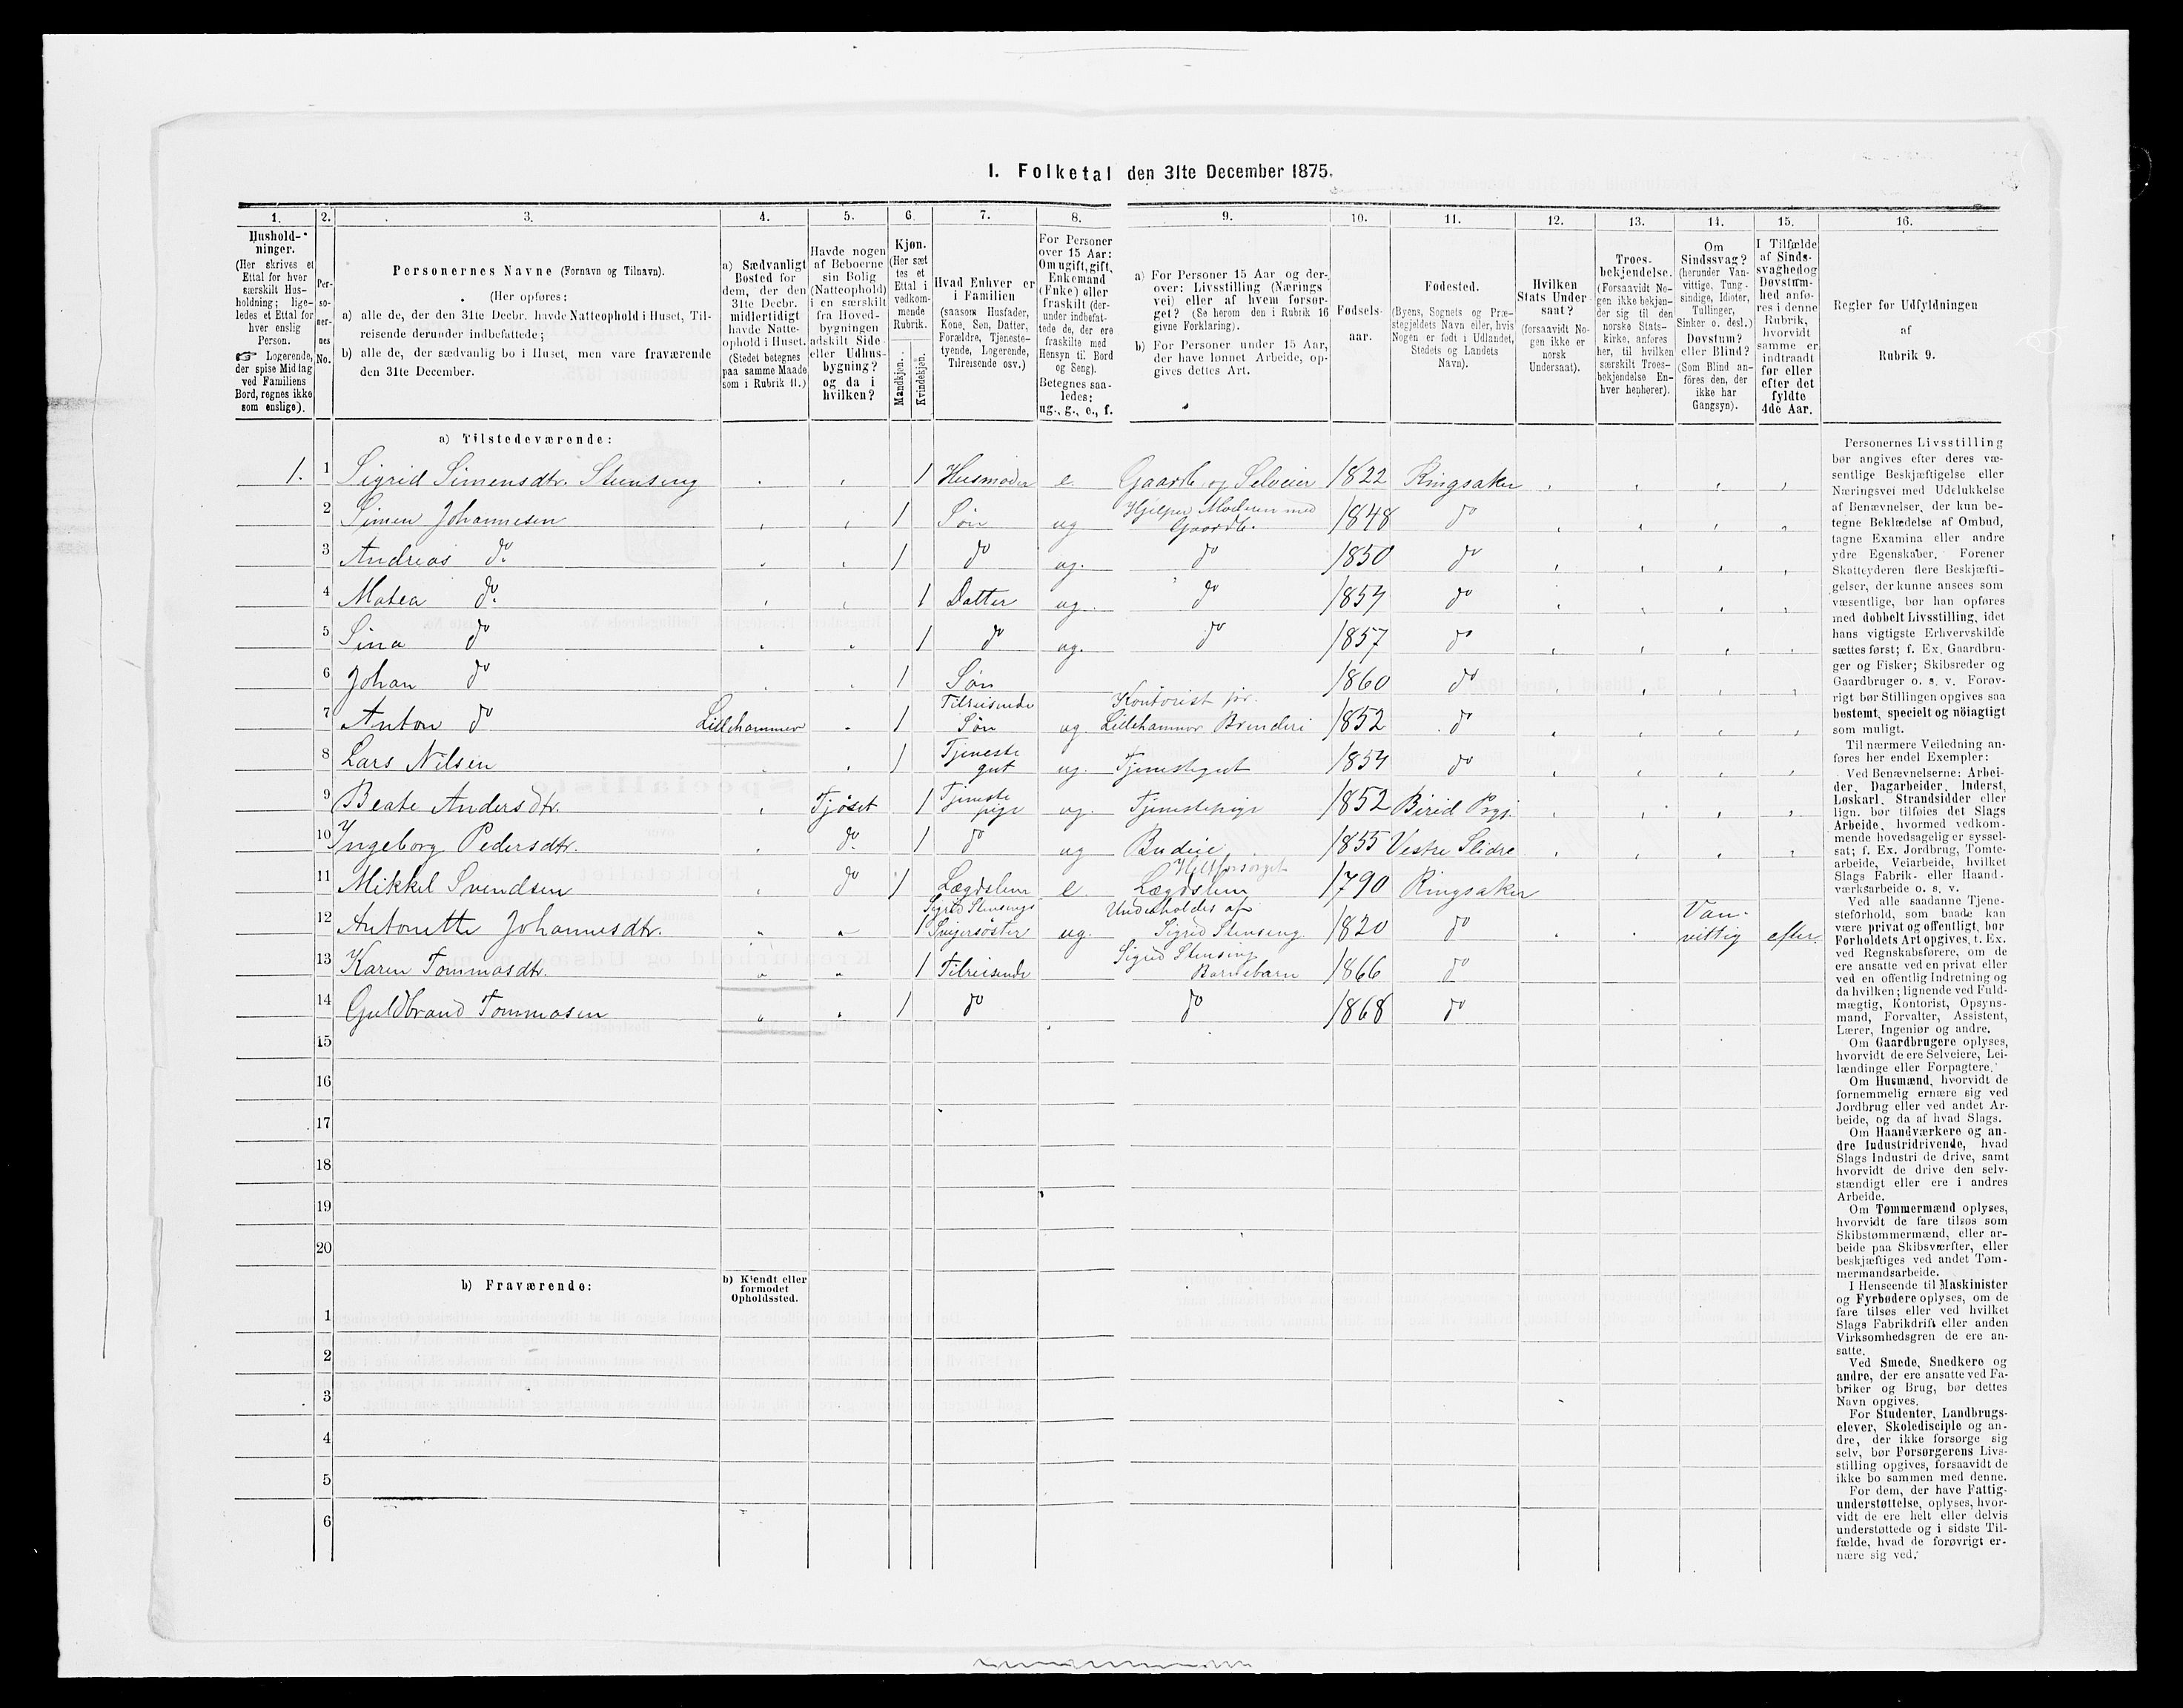 I. Folketal den 31te December 1875.
1. 2. 3. 4. 5. 6. 7. 8. 9. 10. 11. 12. 13. 14. 15. 16.
Hushold-
ninger.
(Her skrives et
Ettal for hver
særskilt Hus-
holdning; lige-
ledes et Ettal for
hver enslig
Person.
☞ Logerende,
der spise Middag
ved Familiens
Bord, regnes ikke
som enslige).
Per-
so-
ner-
nes
No.
Personernes Navne (Fornavn og Tilnavn).
(Her opføres:
a) alle de, der den 31te Decbr. havde Natteophold i Huset, Til-
reisende derunder indbefattede;
b) alle de, der sædvanlig bo i Huset, men vare fraværende
den 31te December.
a) Sædvanligt
Bosted for
dem, der den
31te Decbr.
midlertidigt
havde Natte-
ophold i Huset.
(Stedet betegnes
paa samme Maade
som i Rubrik 11.)
Havde nogen
af Beboerne
sin Bolig
(Natteophold)
i en særskilt
fra Hoved-
bygningen
adskilt Side-
eller Udhus-
bygning?
og da i
hvilken?
Kjøn.
(Her sæt-
tes et
Ettal i
vedkom-
mende
Rubrik.
Mandkjøn.
Kvindekjøn.
Hvad Enhver er
i Familien
(saasom Husfader,
Kone, Søn, Datter,
Forældre, Tjeneste-
tyende, Logerende,
Tilreisende osv.)
For Personer
over 15 Aar:
Om ugift, gift,
Enkemand
(Enke) eller
fraskilt (der-
under indbefat-
tede de, der ere
fraskilte med
Hensyn til Bord
og Seng).
Betegnes saa-
ledes:
ug., g., e., f.
a) For Personer 15 Aar og der-
over: Livsstilling (Nærings-
vei) eller af hvem forsør-
get? (Se herom den i Rubrik 16
givne Forklaring).
b) For Personer under 15 Aar,
der have lønnet Arbeide, op-
gives dettes Art.
Fødsels-
aar.
Fødested.
(Byens, Sognets og Præ-
stegjeldets Navn eller, hvis
Nogen er født i Udlandet,
Stedets og Landets
Navn).
Hvilken
Stats Under-
saat?
(forsaavidt No-
gen ikke er
norsk
Undersaat).
Troes-
bekjendelse.
(Forsaavidt No-
gen ikke bekjen-
der sig til den
norske Stats-
kirke, anføres
her, til hvilken
særskilt Troes-
bekjendelse En-
hver henhører).
Om
Sindssvag?
(herunder Van-
vittige, Tung-
sindige, Idioter,
Tullinger,
Sinker o. desl.)
Døvstum?
eller Blind?
(Som Blind an-
føres den, der
ikke har
Gangsyn).
I Tilfælde
af Sinds-
svaghed og
Døvstum-
hed anfø-
res i denne
Rubrik,
hvorvidt
samme er
indtraadt
før eller
efter det
fyldte
4de Aar.
Regler for Udfyldningen
af
Rubrik 9.
a) Tilstedeværende:
1. 1 Sigrid Simensdtr. Stensing 1 Husmoder e. Gaardb. og Selveier 1822 Ringsaker
2 Simen Johannesen 1 Søn ug Hjelper Moderen med Gaardb. 1848 do
3 Andreas do. 1 do ug. do 1850 do
4 Matea do. 1 Datter ug. do 1854 do
5 Sina do 1 do ug. do 1857 do
6 Johan do 1 Søn 1860 do
7 Anton do Lillehammer 1 Tilreisende Søn ug. Kontorist for Lillehammer Brenderi 1852 do
8 Lars Nilsen 1 Tjeneste gut ug. Tjenestegut 1854 do
9 Beate Andersdtr. Fjöset 1 Tjeneste pige ug. Tjenestepige 1852 Birid Prgj.
10 Ingeborg Pedersdtr. do. 1 do ug Budeie 1855 Vestre Slidre
11 Mikkel Svendsen do 1 Lægdslem e Helt forsørget Lægdslem 1790 Ringsaker
12 Antonette Johannesdtr. 1 Sigrid Stensings Svigersöster ug. Underholdes af Sigrid Stensing 1820 do Van- vittig efter
13 Karen Tommasdtr. 1 Tilreisende Sigrid Stensing Barnebarn 1866 do
14 Guldbrand Tommasen 1 do do 1868 do
15
16
17
18
19
20
b) Fraværende:
b) Kjendt eller
formodet
Opholdssted.
1
2
3
4
5
6
Personernes Livsstilling
bør angives efter deres væ-
sentlige Beskjæftigelse eller
Næringsvei med Udelukkelse
af Benævnelser, der kun be-
tegne Beklædelse af Ombud,
tagne Examina eller andre
ydre Egenskaber. Forener
Skatteyderen flere Beskjæfti-
gelser, der kunne ansees som
væsentlige, bør han opføres
med dobbelt Livsstilling, idet
hans vigtigste Erhvervskilde
sættes først; f. Ex. Gaardbru-
ger og Fisker; Skibsreder og
Gaardbruger o. s. v. Forøv-
rigt bør Stillingen opgives saa
bestemt, specielt og nöiagtigt
som muligt.
Til nærmere Veiledning an-
føres her endel Exempler:
Ved Benævnelserne: Arbei-
der, Dagarbeider, Inderst,
Løskarl, Strandsidder eller
lign. bør tilføies det Slags
Arbeide, hvormed vedkom-
mende hovedsagelig er syssel-
sat; f. Ex. Jordbrug, Tomte-
arbeide, Veiarbeide, hvilket
Slags Fabrik- eller Haand-
værksarbeide o. s. v.
Ved alle saadanne Tjene-
steforhold, som baade kan
være privat og offentligt, bør
Forholdets Art opgives, t. Ex.
ved Regnskabsførere, om de
ere ansatte ved en privat eller
ved en offentlig Indretning og
da hvilken; lignende ved Fuld-
mægtig, Kontorist, Opsyns-
mand, Forvalter, Assistent,
Lærer, Ingeniør og andre.
Om Gaardbrugere oplyses,
hvorvidt de ere Selveiere, Lei-
lændinge eller Forpagtere.
Om Husmænd, hvorvidt de
fornemmelig ernære sig ved
Jordbrug eller ved andet Ar-
beide, og da af hvad Slags.
Om Haandværkere og an-
dre Industridrivende, hvad
Slags Industri de drive, samt
hvorvidt de drive den selv-
stændigt eller ere i andres
Arbeide.
Om Tømmermænd oplyses,
hvorvidt de fare tilsøs som
Skibstømmermænd, eller ar-
beide paa Skibsværfter, eller
beskjæftiges ved andet Tøm-
mermandsarbeide.
I Henseende til Maskinister
og Fyrbødere oplyses, om de
fare tilsøs eller ved hvilket
Slags Fabrikdrift eller anden
Virksomhedsgren de ere an-
satte.
Ved Smede, Snedkere og
andre, der ere ansatte ved Fa-
briker og Brug, bør dettes
Navn opgives.
For Studenter, Landbrugs-
elever, Skoledisciple og an-
dre, der ikke forsørge sig
selv, bør Forsørgerens Livs-
stilling opgives, forsaavidt de
ikke bo sammen med denne.
For dem, der have Fattig-
understøttelse, oplyses, hvor-
vidt de ere helt eller delvis
understøttede og i sidste Til-
fælde, hvad de forøvrigt er-
nære sig ved.